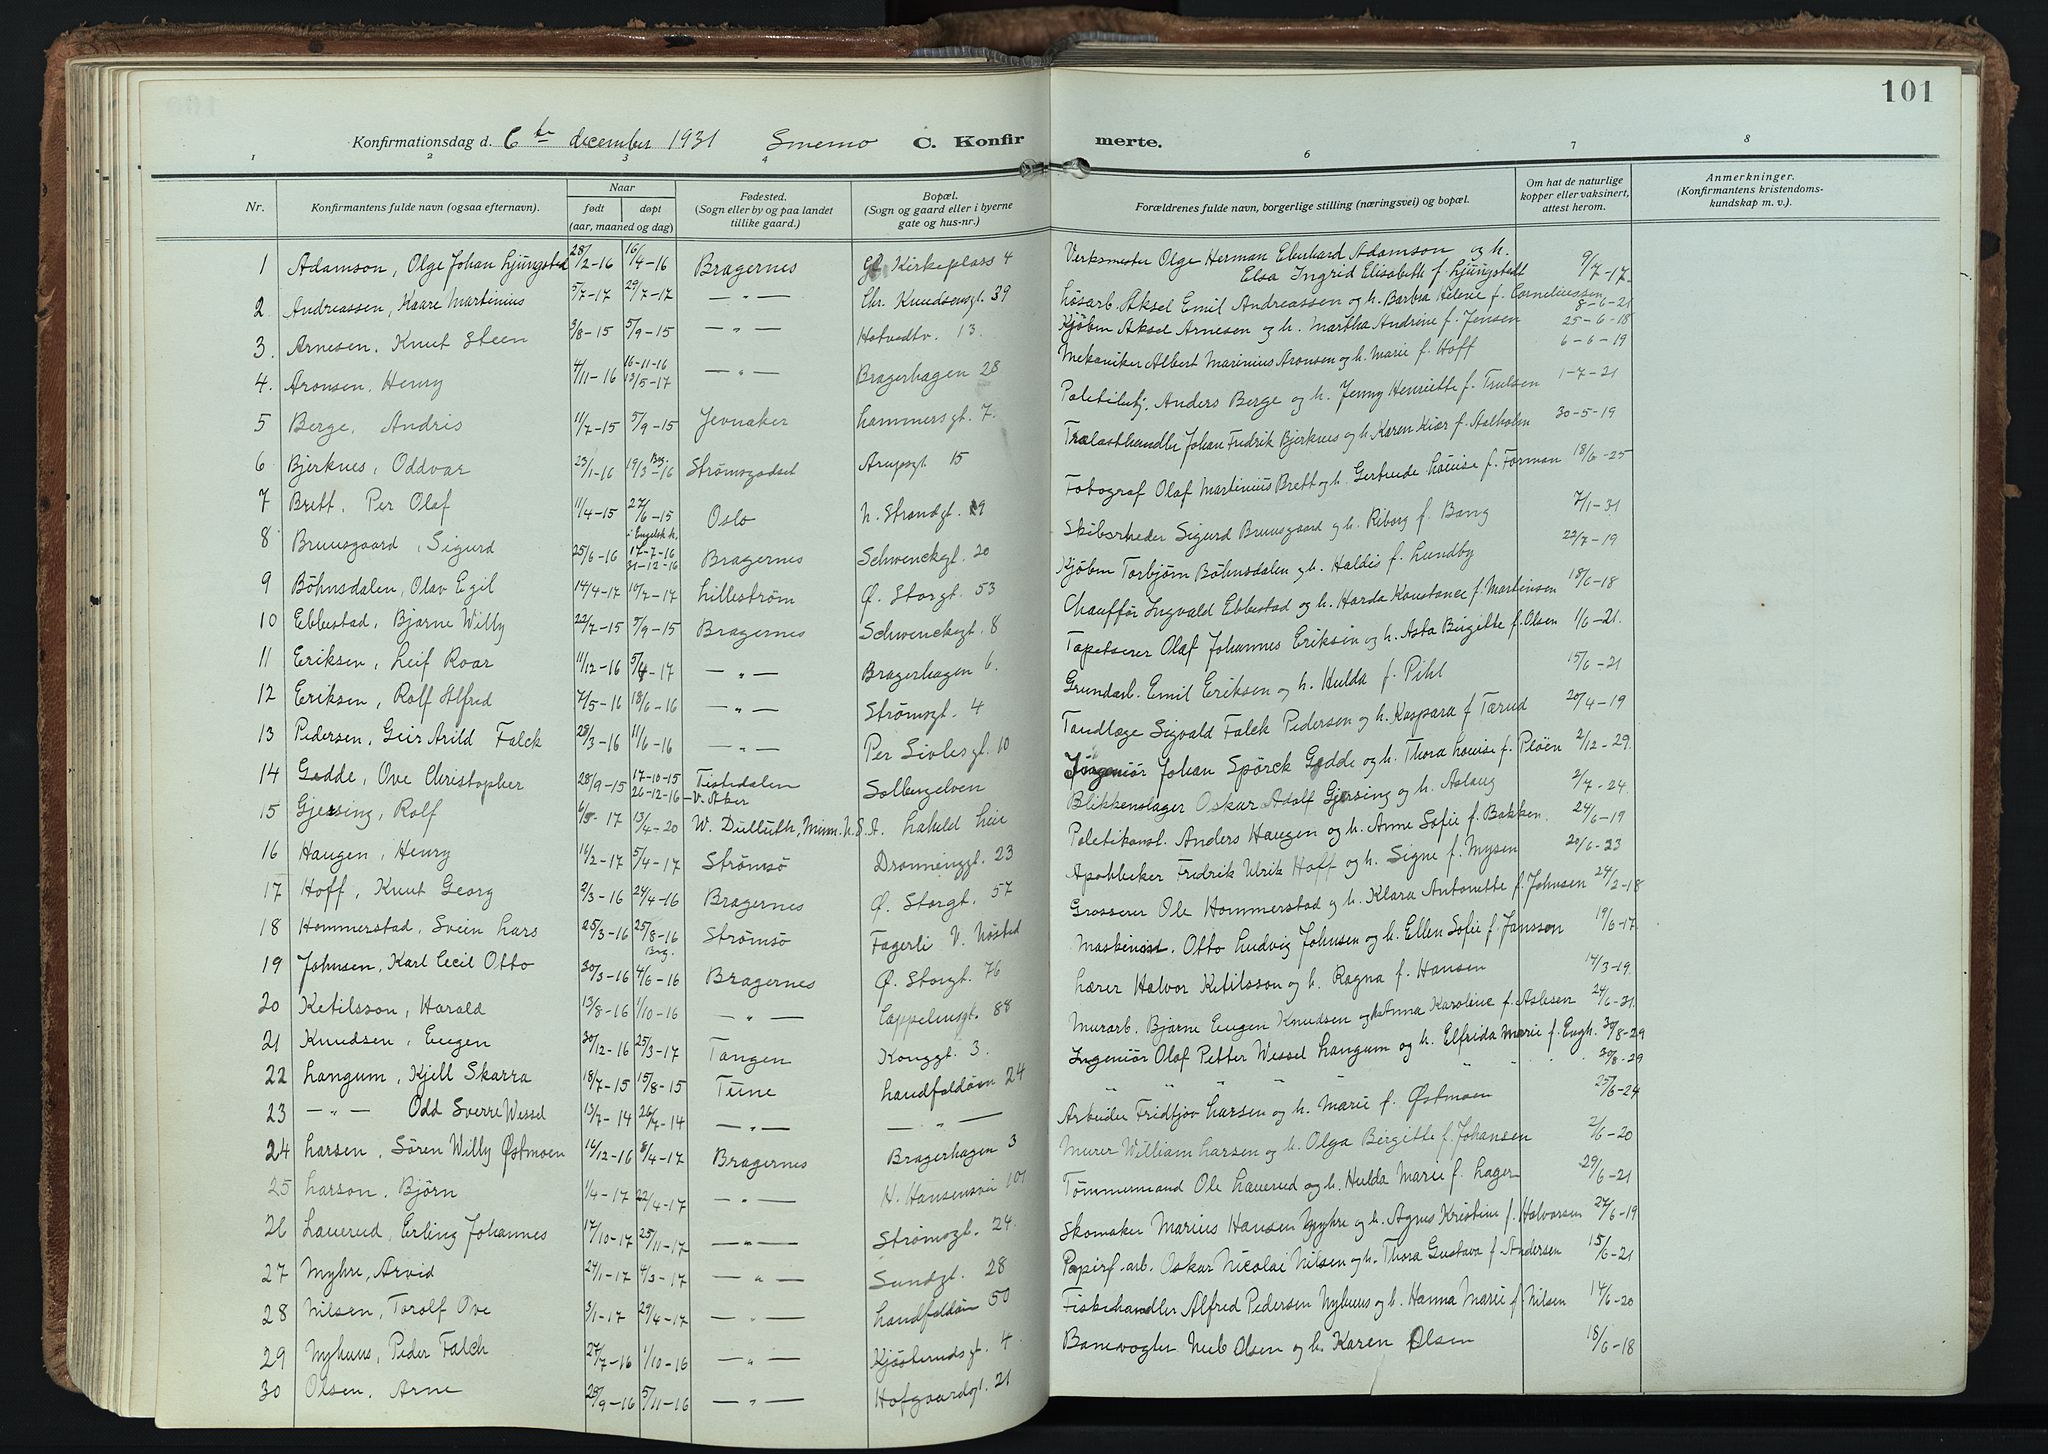 101
Konfirmationsdag d. 6te december 1931 Smemo C. Konfirmerte.
1 2 3 4 6 7 8
Nr. Konfirmantens fulde navn (ogsaa efternavn). Naar født døpt (aar, maaned og dag) Fødested. (Sogn eller by og paa landet tillike gaard.) Bopæl. (Sogn og gaard eller i byerne gate og hus-nr.) Forældrenes fulde navn, borgerlige stilling (næringsvei) og bopæl. Om hat de naturlige kopper eller vaksinert, attest herom. Anmerkninger. (Konfirmantens kristendomskundskap m. v.).
1 Adamson, Olge Johan Ljungsted 28/2-16 16/4-16 Bragernes Gl. Kirkeplass 4 Verksmester Olge Herman Eberhard Adamson og h. Elsa Ingrid Elisabeth f. Ljungstedt 9/7-17
2 Andreassen, Kaare Martinius 5/7-17 29/7-17 — " — Chr. Knudsensgt. 39 Løsarb. Aksel Emil Andreassen og h. Barbra Helene f. Corneliussen 8-6-21
3. Arnesen, Knut Steen 3/8-15 5/9-15 — " — Hotvedtv. 13. Kjøbm Aksel Arnesen og h. Martha Andrine f. Jensen 25-6-18
4. Aronsen, Henry 4/11-16 16-11-16 13/5-17 — " — Bragerhagen 28 Mekaniker Albert Marinius Aronsen og h. Marie f. Hoff 6-6-19
5 Berge, Andris 11/7-15 5/9-15 Jevnaker Lammersgt. 7. Politibetj. Anders Berge og h. Jenny Henriette f. Trulsen 1-7-21
6 Bjerknes, Oddvar 23/1-16 19/3-16 Brag. Strømsgodset Arupsgt 15 Trælasthandler Johan Fredrik Bjerknes og h. Karen Kiær f. Aalholm 30-5-19
7 Brett, Per Olaf 11/4-15 27/6-15 i Engelsk k. Oslo N. Strandgt. 19 Fotograf Olaf Martinius Brett og h. Gertrude Louise f. Forman 18/6-25
8 Bruusgaard, Sigurd 25/6-16 17-7-16 31-12-16 Bragernes Schwenckegt. 20 Skibsrheder Sigurd Bruusgaard og h. Riborg f. Bang 7/1-31
9 Böhnsdalen, Olav Egil 14/4-17 10/7-17 Lillestrøm Ø. Storgt. 53 Kjøbm Torbjørn Böhnsdalen og h. Haldis f. Lundby 22/7-19
10 Ebbestad, Bjarne Willy 22/7-15 5/9-15 Bragernes Schwenckegt. 8 Chauffør Ingvald Ebbestad og h. Harda Konstance f. Martinsen 18/6-18
11 Eriksen, Leif Roar 11/12-16 5/4-17 — " — Bragerhagen 6. Tapetserer Olaf Johannes Eriksen og h. Asta Birgitte f. Olsen 1/6-21.
12 Eriksen, Rolf Alfred 7/5-16 18/6-16 — " — Strømsgt. 4 Grundarb. Emil Eriksen og h. Hulda f. Pihl 15/6-21
13 Pedersen, Geir Arild Falck 28/3-16 11/6-16 — " — Per Sivlesgt. 10 Tandlæge Sigvald Falck Pedersen og h. Kaspara f Tærud 20/4-19
14 Gedde, Ove Christopher 28/9-15 17-10-15 26-12-16 Tistedalen V. Aker Solbergelven Ingeniør Johan Spörck Gedde og h. Thora Louise f. Pløen 2/12-29.
15 Gjersing, Rolf 17 13/4-20 W. Dulluth, Minn. U.S.A. Laheld Lier Blikkenslager Oskar Adolf Gjersing og h. Aslaug 2/7-24
16 Haugen, Henry 16/2-17 5/4-17 Strømsø Dronninggt. 23 Politikonst. Anders Haugen og h. Anne Sofie f. Bakken. 24/6-19
17 Hoff, Knut Georg 2/3-16 24/4-16 Bragernes Ø. Storgt. 57 Apotheker Fredrik Ulrik Hoff og h. Signe f. Mysen 20/6-23
18 Hommerstad, Svein Lars 25/3-16 25/8-16 Brg. Strømsø Fagerli V. Nøsted Grosserer Ole Hommerstad og h. Klara Antonette f. Johnsen 24/2-18
19 Johnsen, Karl Cecil Otto 30/3-16 4/6-16 Bragernes Ø. Storgt. 76 Maskinist. Otto Ludvig Johnsen og h. Ellen Sofie f. Jansson 19/6-17.
20 Ketilsson, Harald 13/8-16 1/10-16 — " — Cappelensgt. 88 Lærer Halvor Ketilsson og h. Ragna f. Hansen 14/3-19.
21 Knudsen, Eugen 30/12-16 25/3-17 Tangen Konggt. 3. Murarb. Bjarne Eugen Knudsen og h Anna Karoline f. Aslesen 24/6-21.
22 Langum, Kjell Skarra 18/7-15 15/8-15 Teine Landfaldøen 24 Ingeniør Olaf Petter Wessel Langum og h. Elfrida Marie f. Engh. 30/8-29
23 — " — Odd Sverre Wessel 13/7-14 26/7-14 — " — — " — " " " " " 20/8-29
24 Larsen, Søren Willy Østmoen 16/12-16 8/4-17 Bragernes Bragerhagen 3 Arbeider Fridtjov Larsen og h. Marie f. Østmoen 25/6-24
25 Larson, Bjørn 1/4-17 22/4-17 — " — H. Hansensvei 101 Murer William Larsen og h. Olga Birgitte f. Johansen 2/6-20
26 Lauerud, Erling Johannes 17/10-17 25/11-17 — " — Strømsgt. 24. Tømmermand Ole Lauerud og h. Hulda Marie f. Lager 29/6-21
27 Myhre, Arvid 24/1-17 4/3-17 — " — Sundgt. 28 Skomaker Marius Hansen Myhre og h. Agnes Kristine f. Halvorsen 27/6-19
28 Nilsen, Torolf Ove 3/1-17 29/4-17 — " — Landfaldøen 50 Papirf. arb. Oskar Nicolai Nilsen og h. Thora Gustava f. Andersen 15/6-21
29 Nyhuus, Peder Falch 27/7-16 1/10-16 — " — Kjøsterudsgt. 4 Fiskehandler Alfred Pedersen Nyhuus og h. Hanna Marie f. Nilsen 14/6-20
30 Olsen, Arne 28/9-16 5/11-16 — " — Hofgaardgt. 21 Banevogter Olsen og h. Karen Olsen 18/6-18